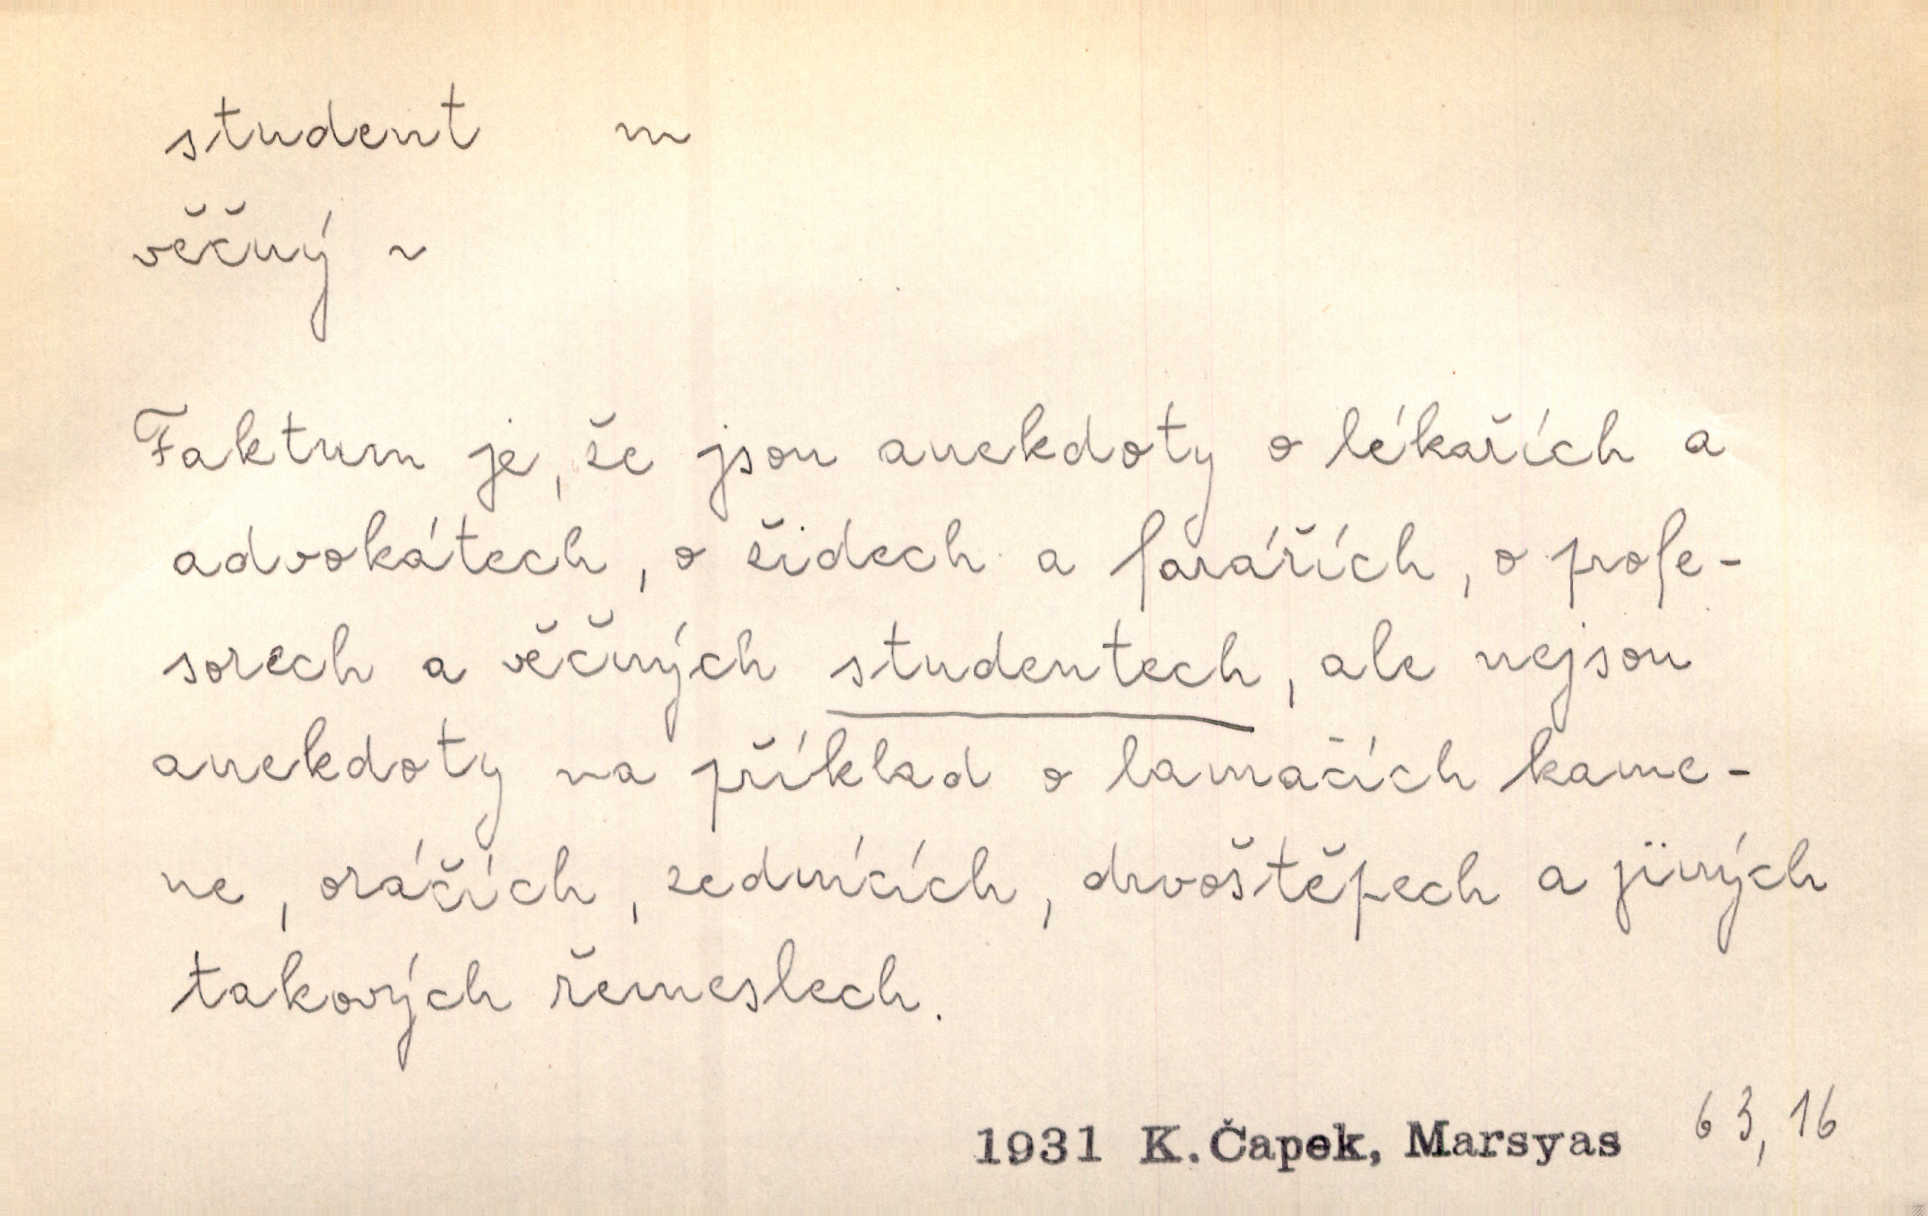 student m
věčný ~
Faktum je, že jsou anekdoty o lékařích a
advokátech, o židech a farářích, o profe-
sorech a věčných studentech, ale nejsou
anekdoty na příklad o lamačích kame-
ne, oráčích, zednících, drvoštěpech a jiných
takových řemeslech.
1931 K. Čapek, Marsyas 63,16